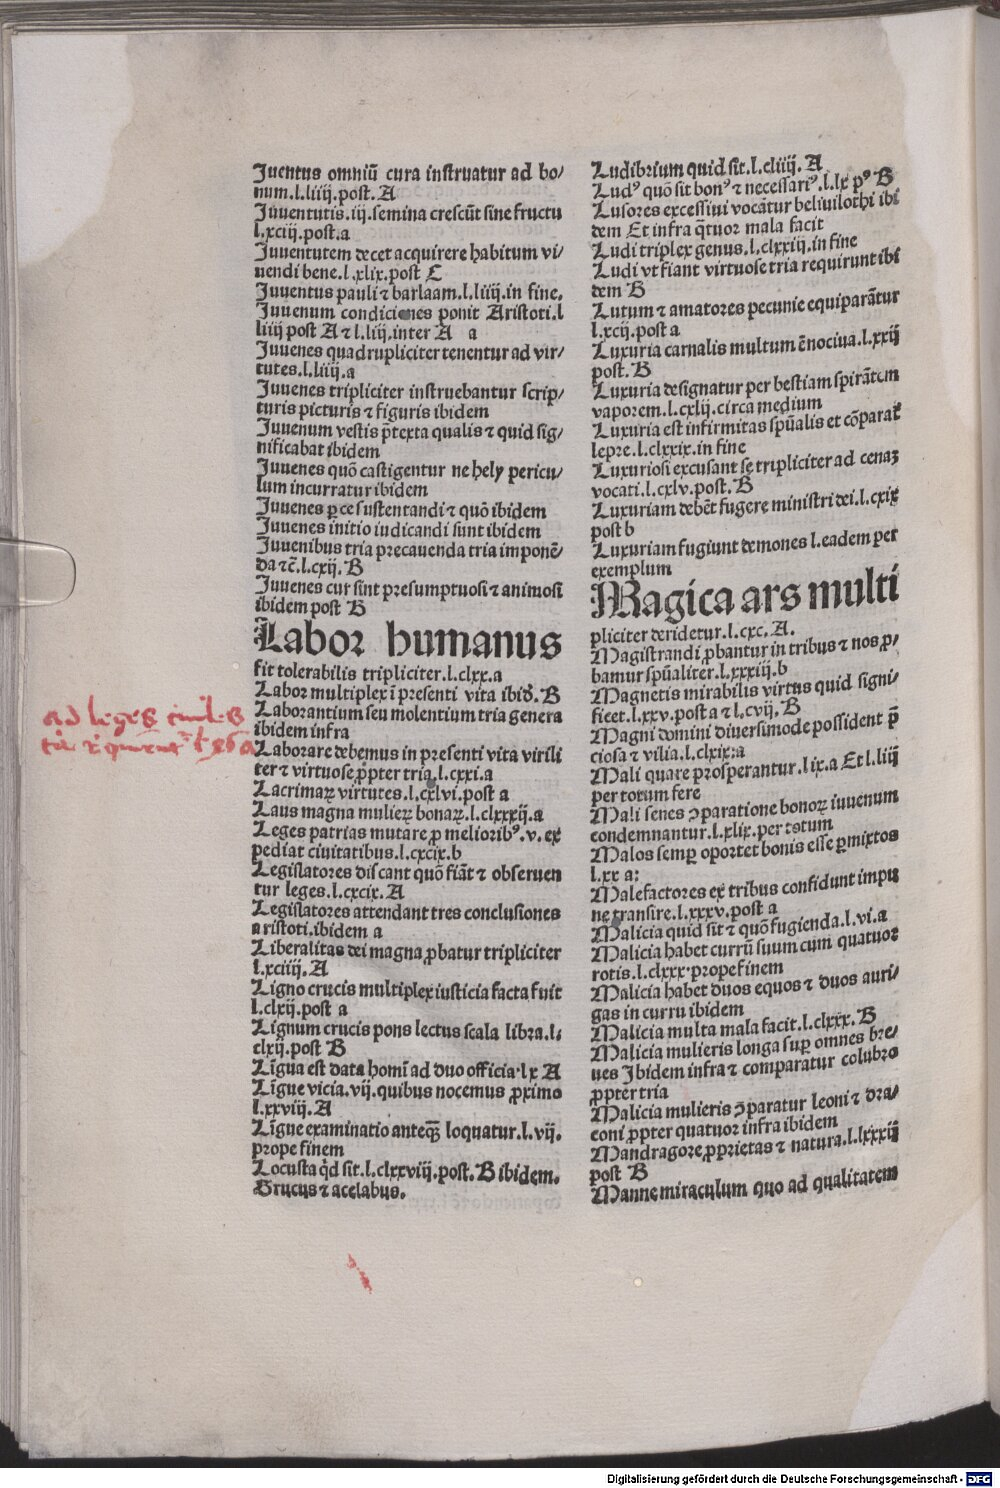 Juuentus omniū cura instruatur ad bo/
num.l.liiij.post.A
Juuentutis.iij.semina crescūt sine fructu
l.xciij.post.a
Juuentutem decet acquirere habitum vi/
uendi bene.l.xlix.post C
Juuentus pauli ⁊ barlaam.l.liiij.in fine.
Juuenum condiciones ponit Aristoti.l
liiij post A ⁊ l.liij.inter A a
Juuenes quadrupliciter tenentur ad vir/
tutes.l.liiij.a
Juuenes tripliciter instruebantur scrip/
turis picturis ⁊ figuris ibidem
Juuenum vestis p̄texta qualis ⁊ quid sig/
nificabat ibidem
Juuenes quō castigentur ne hely pericu/
lum incurratur ibidem
Juuenes ꝑ ce sustentandi ⁊ quō ibidem
Juuenes initio iudicandi sunt ibidem
Juuenibus tria precauenda tria imponē/
da ⁊c̄.l.cxij.B
Juuenes cur sint presumptuosi ⁊ animosi
ibidem post B
Labor humanus
fit tolerabilis tripliciter.l.clxx.a
Labor multiplex ī presenti vita ibid̄.B
Laborantium seu molentium tria genera
ibidem infra
Laborare debemus in presenti vita virili
ter ⁊ virtuose ꝓpter tria.l.cxxi.a
Lacrimaꝝ virtutes.l.cxlvi.post a
Laus magna mulieꝝ bonaꝝ.l.clxxxij.a
Leges patrias mutare ꝓ meliorib⁹.v.ex
pediat ciuitatibus.l.cxcix.b
Legislatores discant quō fiāt ⁊ obseruen
tur leges.l.cxcix.A
Legislatores attendant tres conclusiones
aristoti.ibidem a
Liberalitas dei magna ꝓbatur tripliciter
l.xciiij.A
Ligno crucis multiplex iusticia facta fuit
l.clxij.post a
Lignum crucis pons lectus scala libra.l.
clxij.post B
Līgua est data homī ad duo officia.lx A
Līgue vicia.vij.quibus nocemus ꝓximo
l.xxviij.A
Līgue examinatio anteq̄ꝫ loquatur.l.vij.
prope finem
Locusta q̇d sit.l.clxxviij.post.B ibidem.
Brucus ⁊ acelabus.
ad leges
Ludibrium quid sit.l.cliiij.A
Lud⁹ quō sit bon⁹ ⁊ necessari⁹.l.lx p⁹ B
Lusores excessiui vocātur beliuilothi ibi
dem Et infra q̄tuor mala facit
Ludi triplex genus.l.clxxiij.in fine
Ludi vt fiant virtuose tria requirunt ibi
dem B
Lutum ⁊ amatores pecunie equiparātur
l.xcij.post a
Luxuria carnalis multum ē nociua.l.xxij
post.B
Luxuria designatur per bestiam spirātem
vaporem.l.cxlij.circa medium
Luxuria est infirmitas spūalis et cōparat᷑
lepre.l.clxxix.in fine
Luxuriosi excusant se tripliciter ad cenaꝫ
vocati.l.cxlv.post.B
Luxuriam debēt fugere ministri dei.l.cxix
post b
Luxuriam fugiunt demones l.eadem per
exemplum
Magica ars multi
pliciter deridetur.l.cxc.A.
Magistrandi ꝓbantur in tribus ⁊ nos ꝓ/
bamur spūaliter.l.xxxiij.b
Magnetis mirabilis virtus quid signi/
ficet.l.xxv.post a ⁊ l.cvij.B
Magni domini diuersimode possident p̄
ciosa ⁊ vilia.l.clxix:a
Mali quare prosperantur.l ix.a Et l.liij
per totum fere
Mali senes ꝯparatione bonoꝝ iuuenum
condemnantur.l.xlix.per totum
Malos semꝑ oportet bonis esse ꝑmixtos
l.xx a:
Malefactores ex tribus confidunt impu
ne transire.l.xxxv.post a
Malicia quid sit ⁊ quō fugienda.l.vi.a
Malicia habet currū suum cum quatuor
rotis.l.clxxx.prope finem
Malicia habet duos equos ⁊ duos auri/
gas in curru ibidem
Malicia multa mala facit.l.clxxx.B
Malicia mulieris longa suꝑ omnes bre/
ues Ibidem infra ⁊ comparatur colubro
ꝓpter tria
Malicia mulieris ꝯparatur leoni ⁊ dra/
coni ꝓpter quatuor infra ibidem
Mandragore ꝓprietas ⁊ natura.l.lxxxij
post B
Manne miraculum quo ad qualitatem
Digitalisierung gefördert durch die Deutsche Forschungsgemeinschaft - DFG